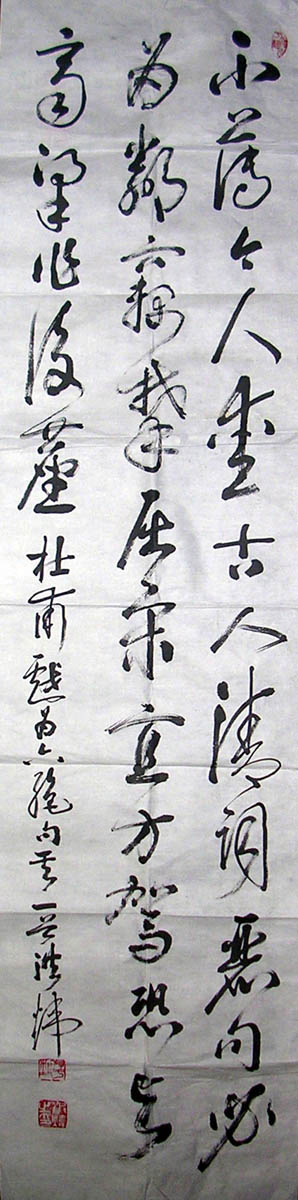 不薄今人愛古人清詞麗句必
為鄰竊攀屈宋宜方駕恐与
齊梁作後塵 杜甫戲為六絕句其一